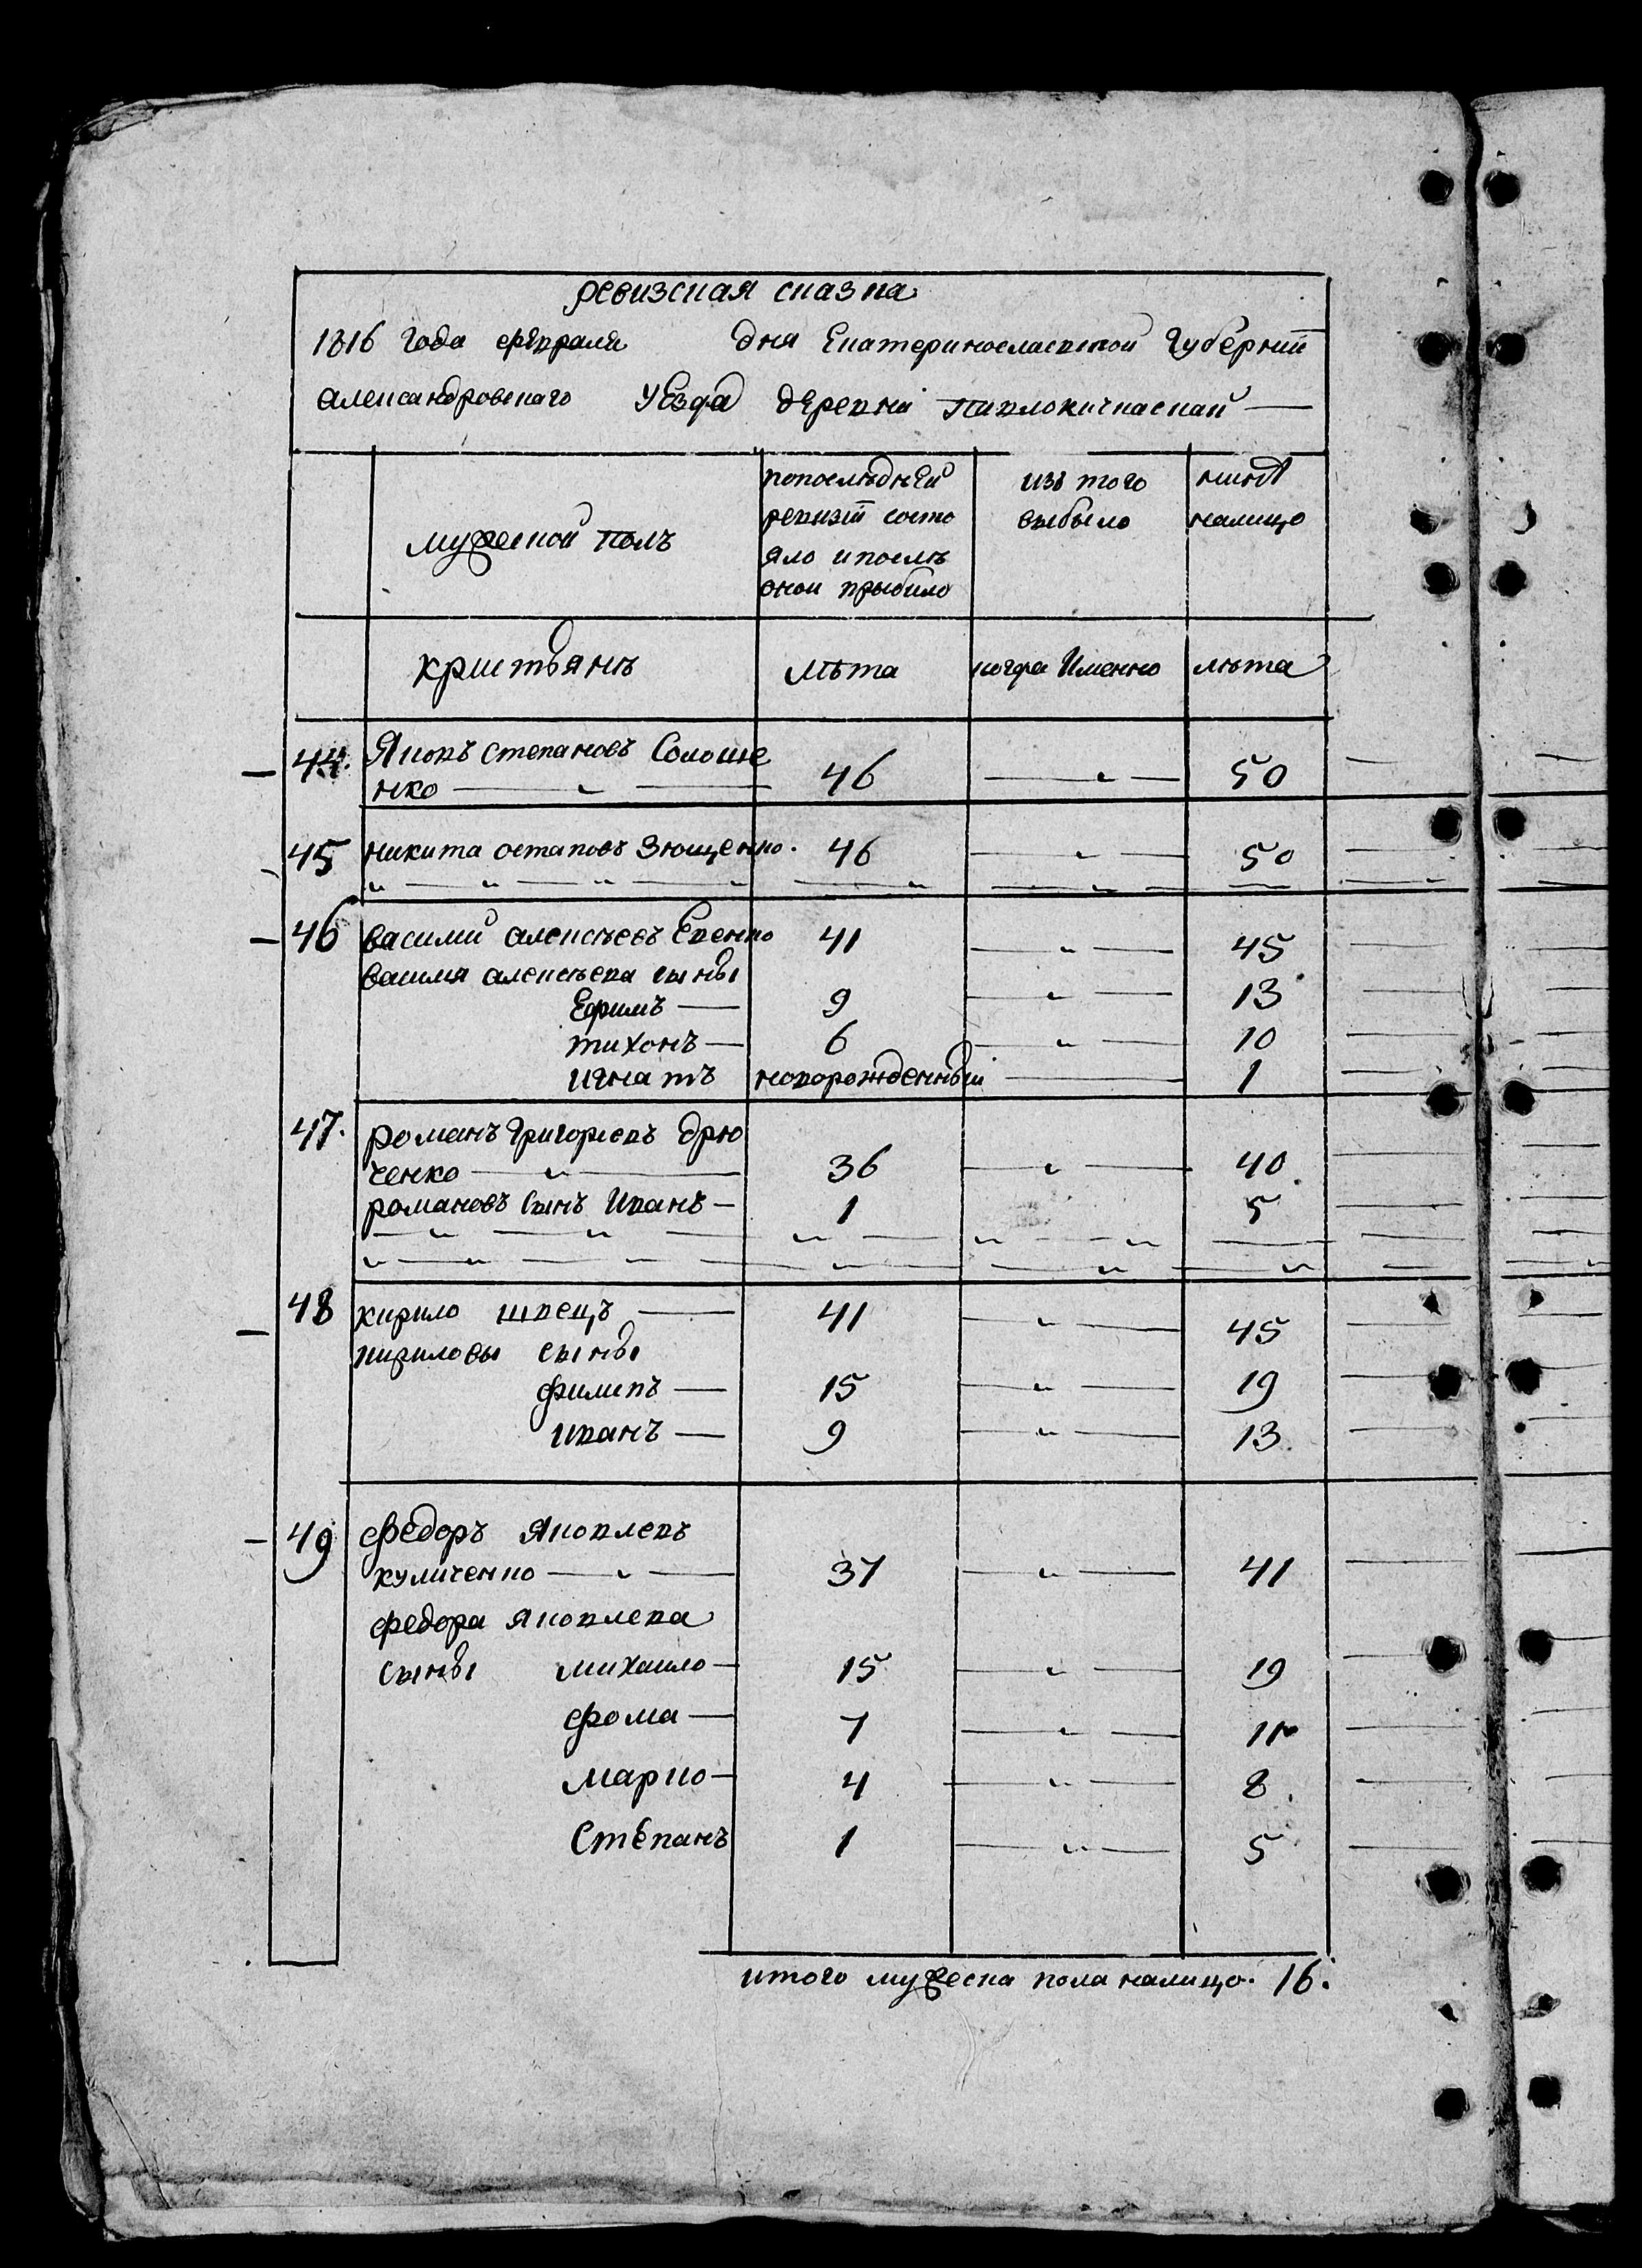 ревизская сказка
1816 года февраля дня Екатеринославской Губернïи
александровского уезда деревни Павлокичкаской
мужеской полъ
попослѣдней
ревизïи состо
яло и послѣ
оной прыбило
изъ того
выбыло
нынѣ
налицо
кристьянъ
лѣта
когда Именно
лѣта
44. Яковъ степановъ Солоше
нко 46 50
45 никита остаповъ Зющенко. 46 50
46 василий алексѣевъ Евенко 41 45
василя алексѣева сыны
Ефимъ 9 13
тихонъ 6 10
игнатъ новорожденный 1
47. романъ григориевъ дрю
ченко 36 40
романовъ сынъ Иванъ 1 5
48 кирило швецъ 41 45
кириловы сыны
филипъ 15 19
иванъ 9 13
49 федоръ Яковлевъ
куличенко 37 41
федора яковлева
сыны михаило 15 19
фома 7 11
марко 4 8
Степанъ 1 5
итого мужеска пола налицо. 16.